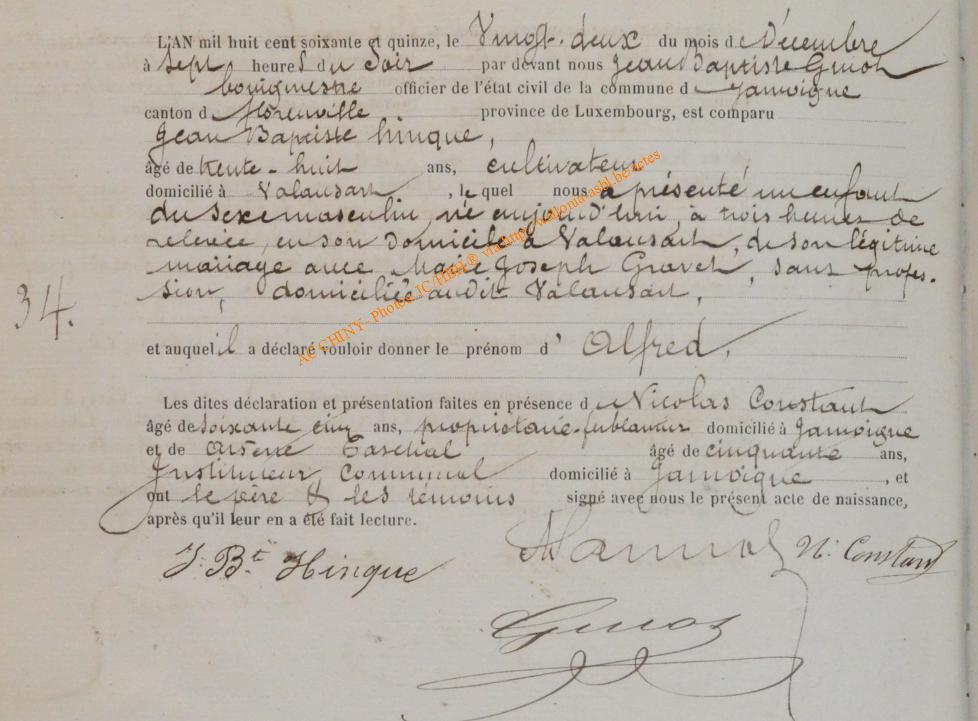 L'AN mil huit cent soixante et quinze, le Vingt-deux du mois de Décembre
à Sept heures du Soir par devant nous Jean Baptiste Guiot
bourgmestre officier de l'état civil de la commune de Jamoigne
canton de Florenville province de Luxembourg, est comparu
Jean Baptiste hinque,
âgé de trente-huit ans, cultivateur
domicilié à Valansart, lequel nous a présenté un enfant
du sexe masculin, né aujourd'hui, à trois heures de
relevée, en son domicile à Valansart, de son légitime
mariage avec Marie Joseph Gravet, sans profes-
sion, domiciliée audit Valansart,
34.
et auquel il a déclaré vouloir donner le prénom d' Alfred,
Les dites déclaration et présentation faites en présence de Nicolas Constant
âgé de soixante cinq ans, propriétaire-ferblantier domicilié à Jamoigne
et de Arsène âgé de cinquante ans,
Instituteur Communal domicilié à Jamoigne, et
ont le père & les témoins signé avec nous le présent acte de naissance,
après qu'il leur en a été fait lecture.
J. Bte Hinque N. Constant
Guiot
AC CHINY - Photos JC/HBH ® via http://wallonia-asbl.be/actes